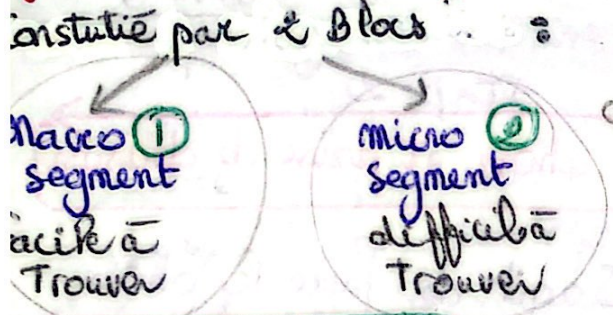 onstutié par 2 Blocs :
Macro 1
segment
facile à
Trouver
micro 2
segment
difficilà
Trouver